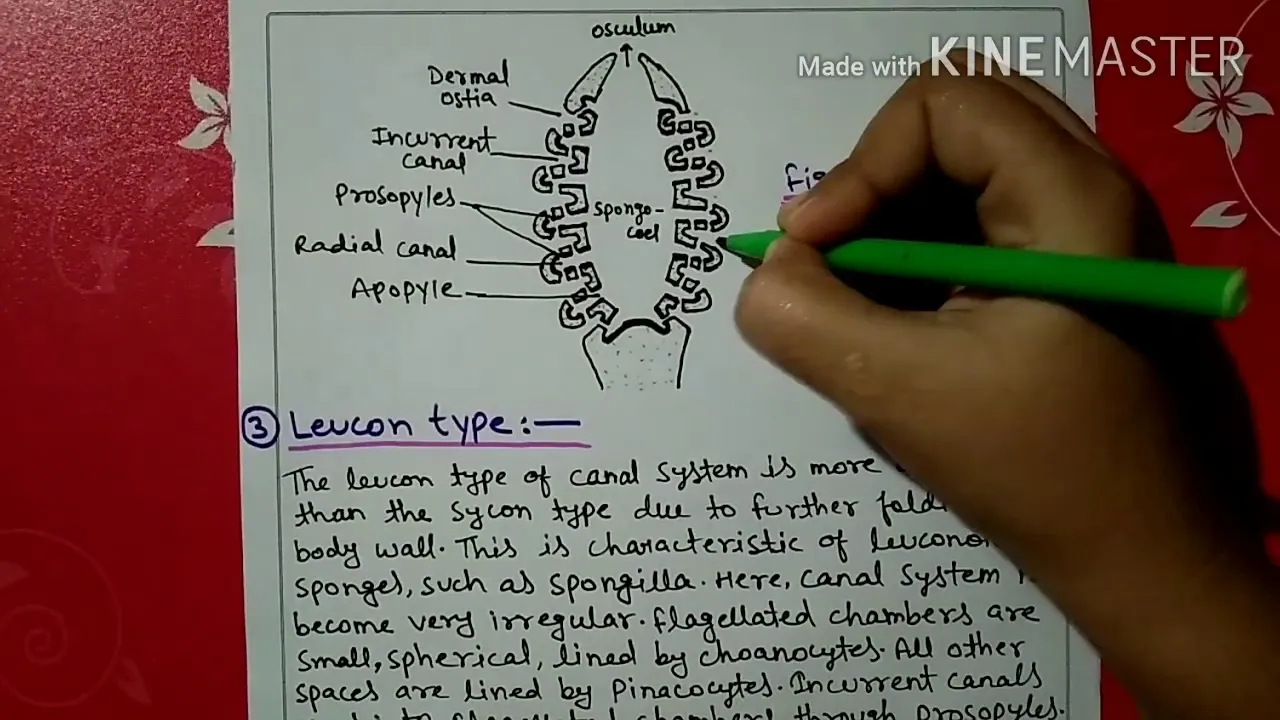 Made with KINEMASTER
osculum
Dermal
ostia
Incurrent
canal
Prosopyles
Radial canal
Apopyle
Spongo-
coel
Fig
③ Leucon type:—
The leucon type of canal system is more
than the sycon type due to further
body wall. This is characteristic of
sponges, such as spongilla. Here, canal system
become very irregular. flagellated chambers are
small, spherical, lined by choanocytes. All other
spaces are lined by pinacocytes. Incurrent canals
chambers through prosopyles.